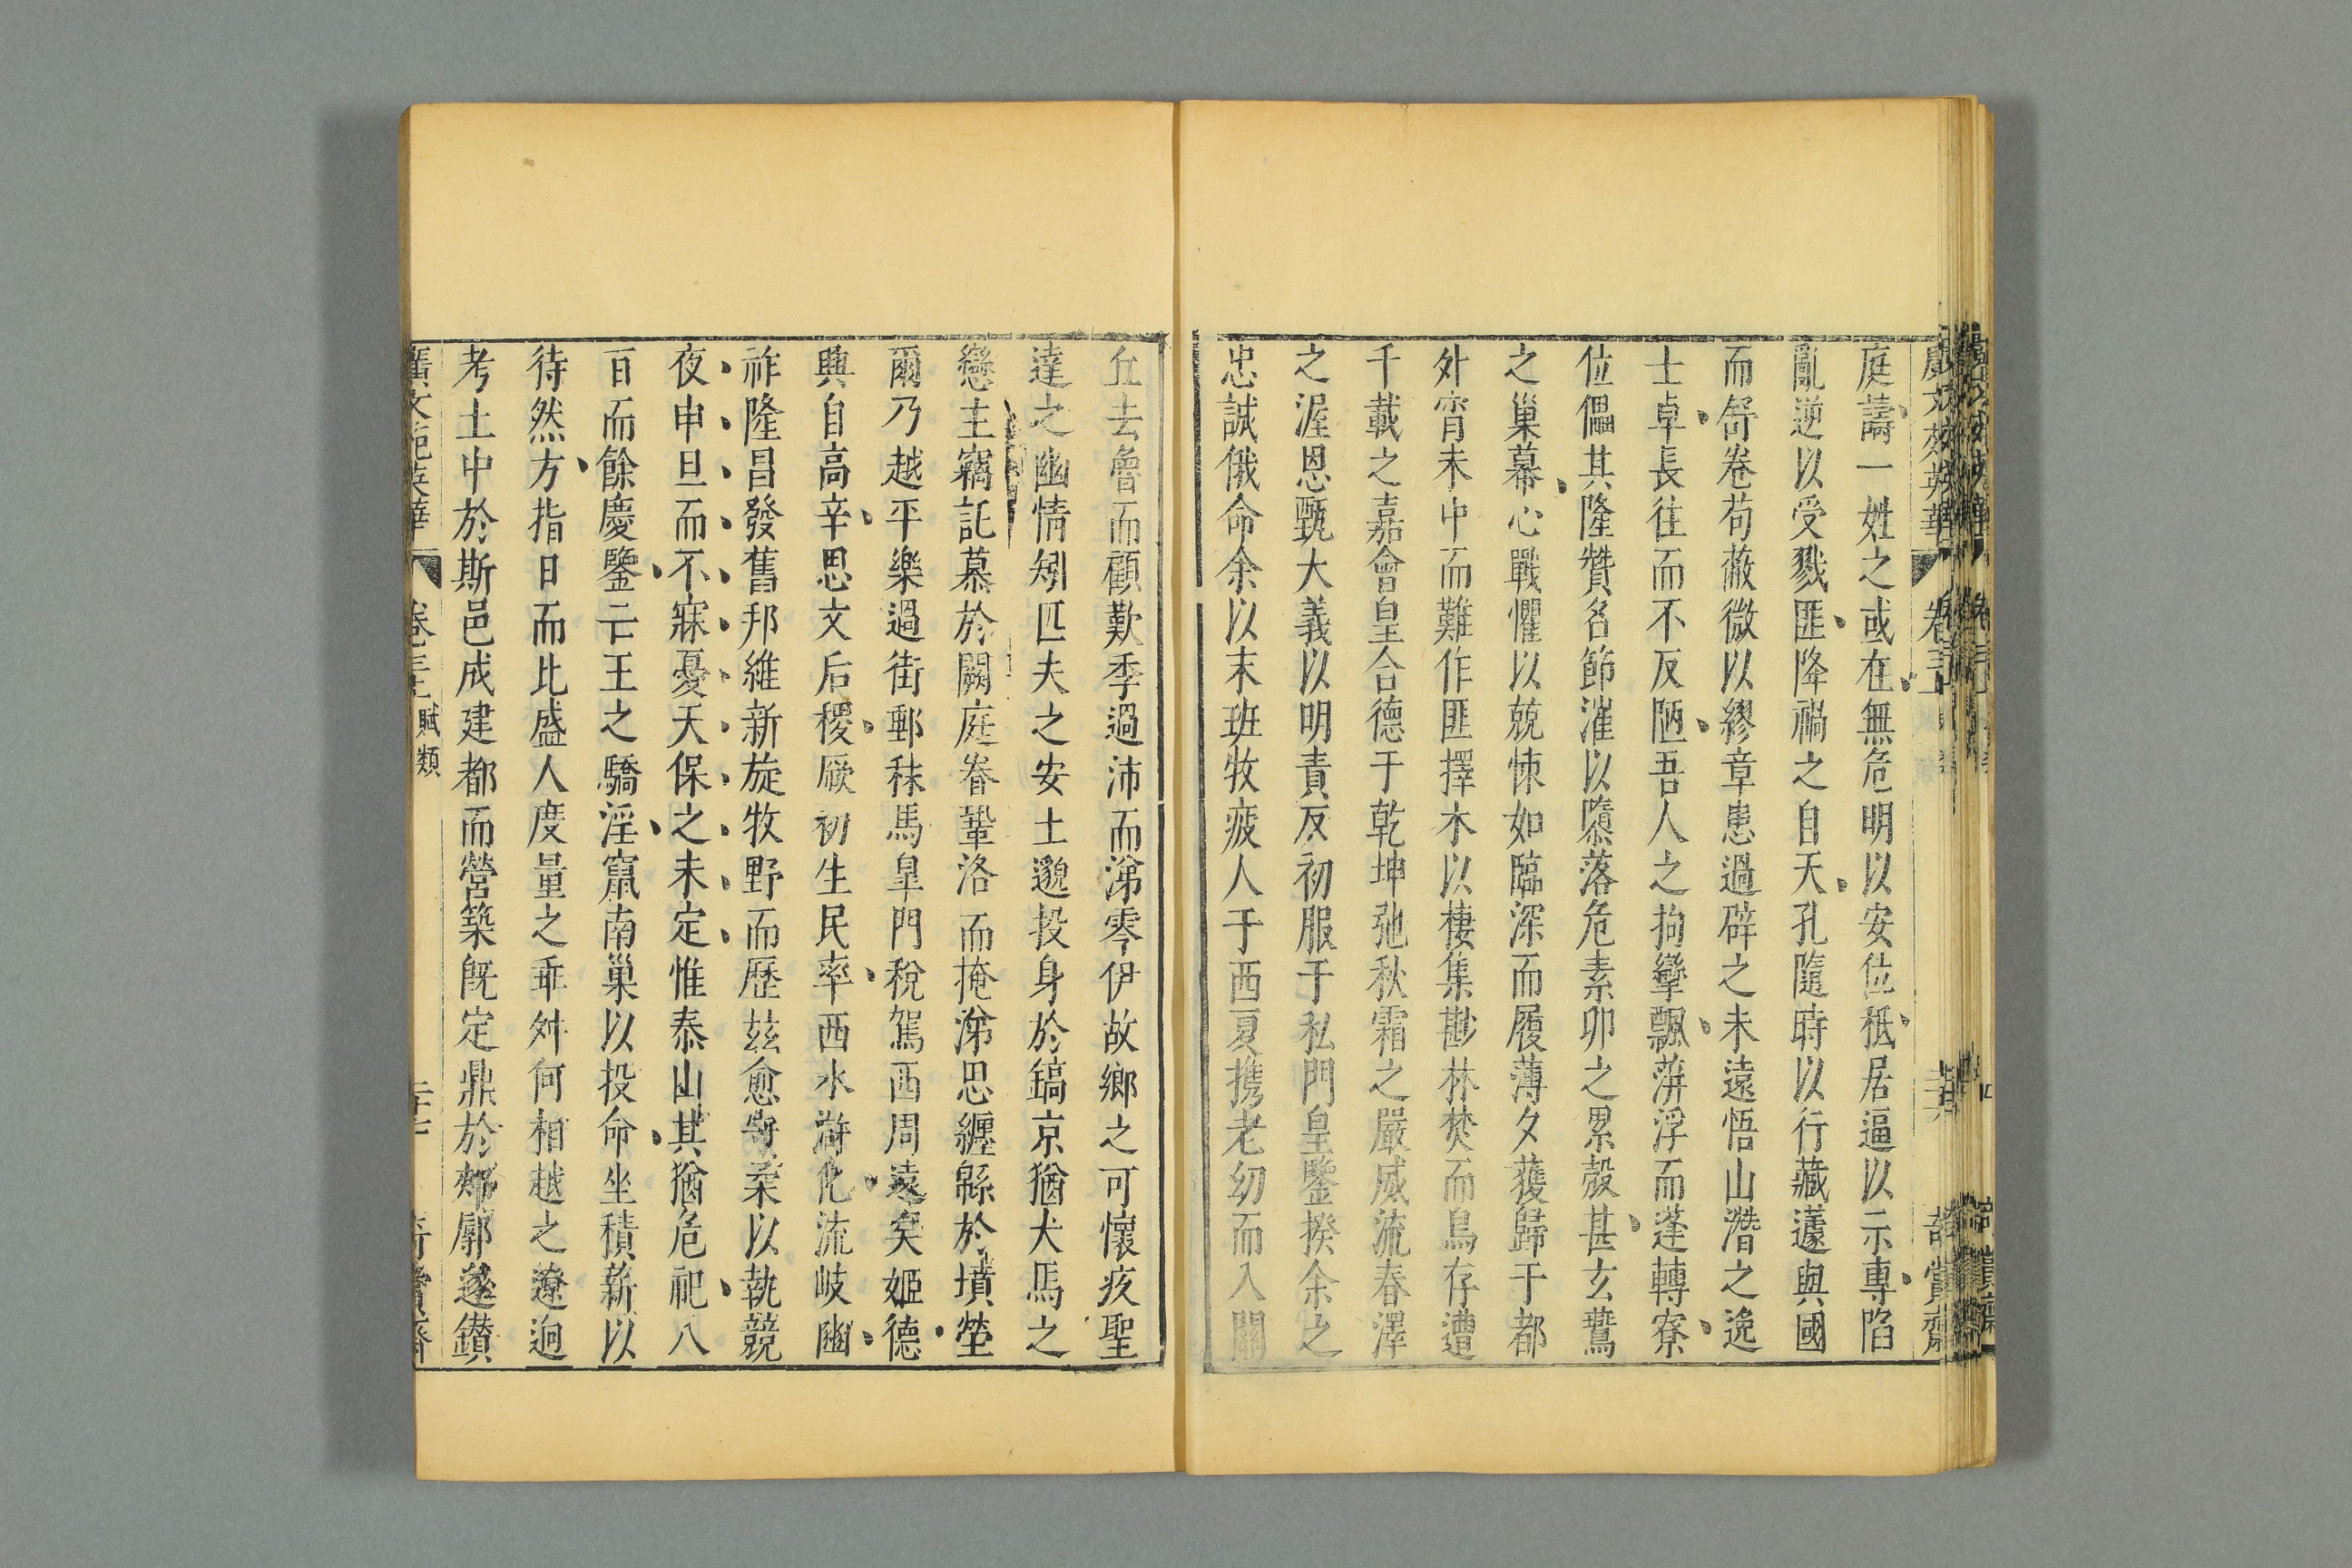 庭譸一姓之或在無危明以安位祗居逼以示專陷
亂逆以受戮匪降禍之自天孔隨時以行藏蘧與國
而舒卷苟蔽微以繆章患過辟之未遠悟山潛之逸
士卓長往而不反陋吾人之拘攣飄萍浮而蓬轉寮
位儡其隆贊名節漼以隳落危素卵之累殼甚玄鷰
之巢幕心戰懼以兢悚如臨深而履薄夕獲歸于都
外宵未中而難作匪擇木以棲集尠林焚而鳥存遭
千載之嘉會皇合德于乾坤弛秋霜之嚴威流春澤
之渥恩甄大義以明責反初服于私門皇鑒揆余之
忠誠俄命余以末班牧疲人于西夏携老幼而入關
丘去魯而顧歎季過沛而涕零伊故鄉之可懷疚聖
達之幽情矧匹夫之安土邈投身於鎬京猶犬馬之
戀主竊託慕於闕庭眷鞏洛而掩涕思纏緜於墳塋
爾乃越平樂過街郵秣馬皐門稅駕西周遠矣姬德
興自高辛思文后稷厥初生民率西水滸化流岐豳
祚隆昌發舊邦維新旋牧野而歷兹愈守柔以執競
夜申旦而不寐憂天保之未定惟泰山其猶危祀八
百而餘慶鑒亡王之驕淫竄南巢以投命坐積薪以
待然方指日而比盛人度量之乖舛何相越之遼逈
考土中於斯邑成建都而營築旣定鼎於郟鄏遂鑚
廣文苑英華　卷之三　賦類